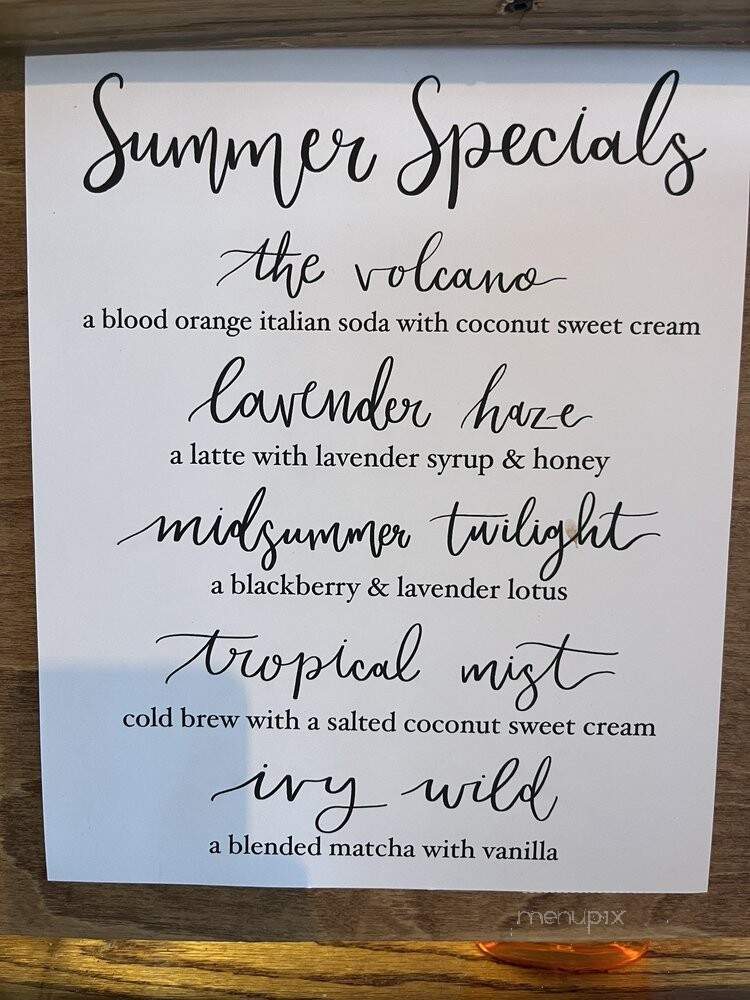 Summer Specials
the volcano
a blood orange italian soda with coconut sweet cream
lavender haze
a latte with lavender syrup & honey
midsummer twilight
a blackberry & lavender lotus
tropical mist
cold brew with a salted coconut sweet cream
ivy wild
a blended matcha with vanilla
menupix